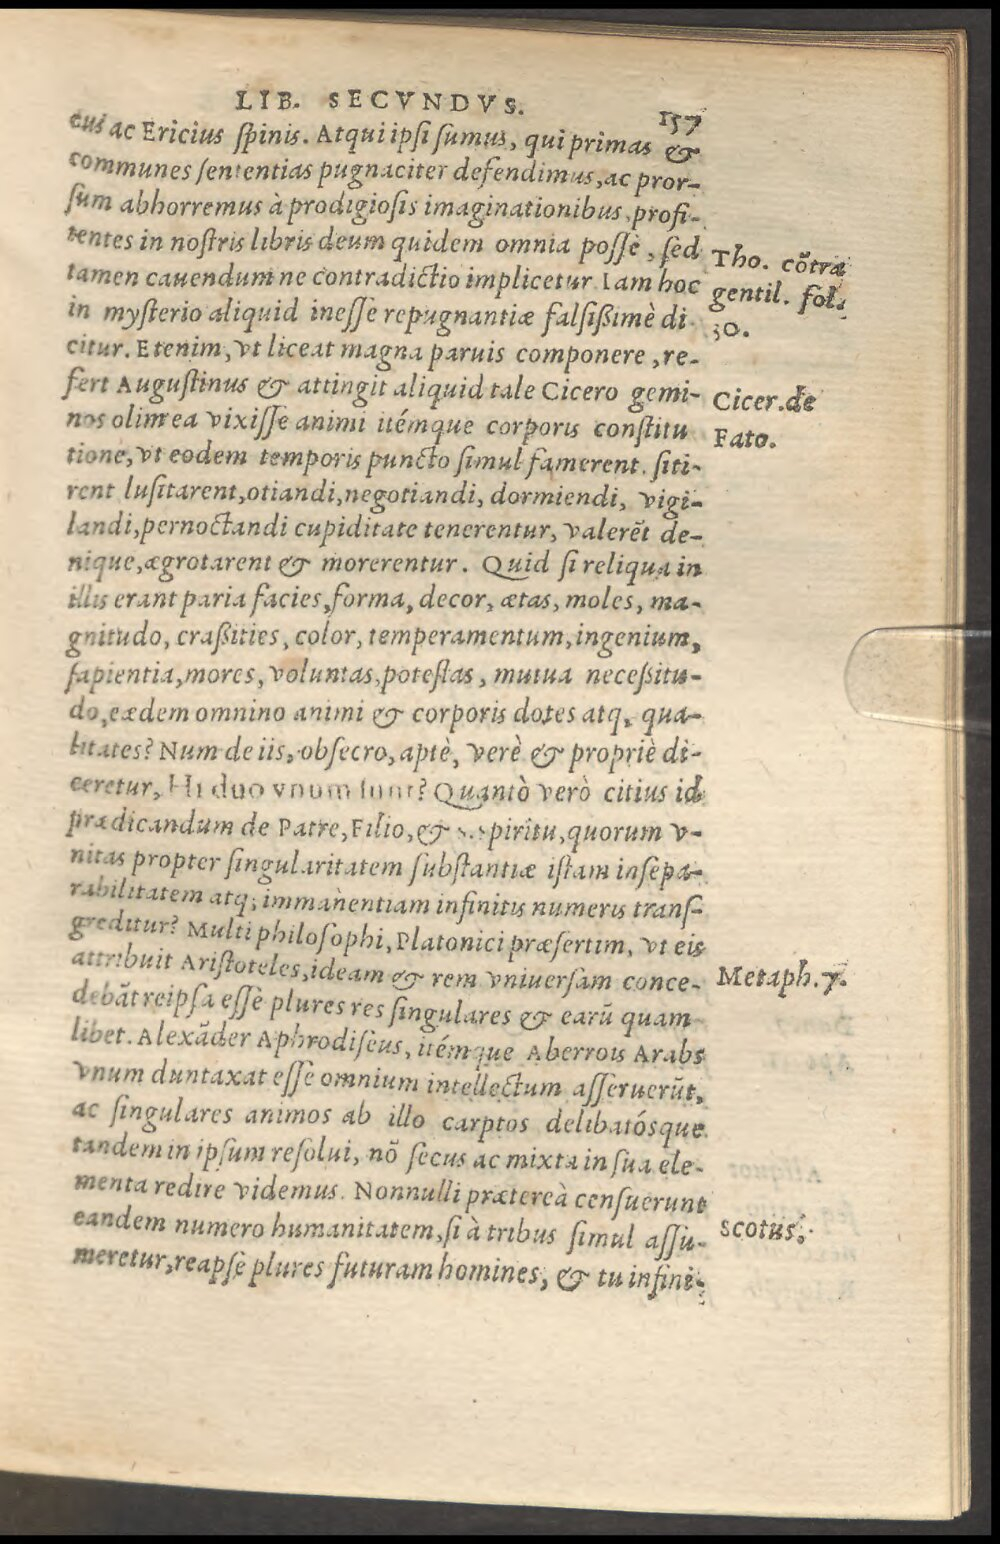 LIB. SECVNDVS. 157
cus ac Ericius ſpinis. Atqui ipſi ſumus, qui primas &
communes ſententias pugnaciter defendimus, ac pror-
ſum abhorremus à prodigioſis imaginationibus, profi-
tentes in noſtris libris deum quidem omnia poſſe, ſed
tamen cauendum ne contradictio implicetur. Iam hoc
in myſterio aliquid ineſſe repugnantiæ falſißimè di
citur. Etenim, vt liceat magna paruis componere, re-
fert Auguſtinus & attingit aliquid tale Cicero gemi-
nos olim ea vixiſſe animi itémque corporis conſtitu
tione, vt eodem temporis puncto ſimul famerent. ſiti-
rent luſitarent, otiandi, negotiandi, dormiendi, vigi-
landi, pernoctandi cupiditate tenerentur, valerẽt de-
nique, ægrotarent & morerentur. Quid ſi reliqua in
illis erant paria facies, forma, decor, ætas, moles, ma-
gnitudo, craßities, color, temperamentum, ingenium,
ſapientia, mores, voluntas, poteſtas, mutua neceßitu-
do, eædem omnino animi & corporis dotes atq, qua-
litates? Num de iis, obſecro, aptè, verè & propriè di-
ceretur, Hi duo vnum ſunt? Quantò verò citius id
prædicandum de Patre, Filio, & S. Spiritu, quorum v-
nitas propter ſingularitatem ſubſtantiæ iſtam inſepa-
rabilitatem atq; immanentiam infinitis numeris tranſ-
greditur? Multi philoſophi, Platonici præſertim, vt eis
attribuit Ariſtoteles, ideam & rem vniuerſam conce-
debãt reipſa eſſe plures res ſingulares & earũ quam
libet. Alexãder Aphrodiſeus, itémque Aberrois Arabs
vnum duntaxat eſſe omnium intellectum aſſeruerũt,
ac ſingulares animos ab illo carptos delibatósque
tandem in ipſum reſolui, nõ ſecus ac mixta in ſua ele-
menta redire videmus. Nonnulli prætereà cenſuerunt
eandem numero humanitatem, ſi à tribus ſimul aſſu-
meretur, reapſe plures futuram homines, & tu infini-
Tho. cõtra
gentil. fol.
30.
Cicer. de
Fato.
Metaph. 7.
Scotus.